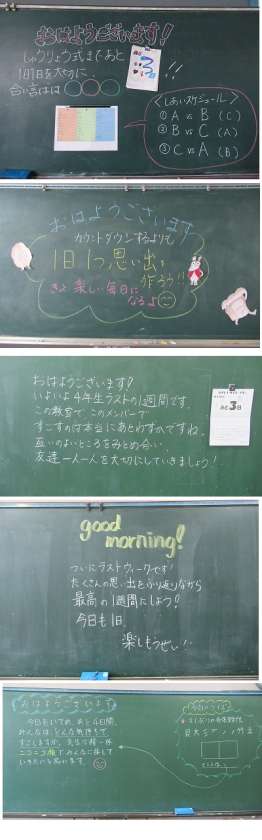 おはようございます!
しゅうりょう式まであと
1日1日を大切に
合い言葉は○○○
3
!!
<しあいスケジュール>
① A vs B (C)
② B vs C (A)
③ C vs A (B)
おはようございます
カウントダウンするよりも
1日1つ思い出を
作ろう!!
きょうも楽しい毎日に
なるよ
おはようございます!
いよいよ4年生ラストの1週間です。
この教室で、このメンバーで
すごすのは本当にあとわずかですね。
互いのよいところをみとめ合い、
友達一人一人を大切にしていきましょう!
あと3日
good
morning!
ついにラストウィークです!
たくさんの思い出をふり返りながら
最高の1週間にしよう!
今日も1日
楽しもうぜい!
おはようございます
今日もいれて、あと4日間
みんなは、どんな気持ちで
すごしますか。先生は精一杯
ニコニコ顔でみんなに接して
いきたいと思います。